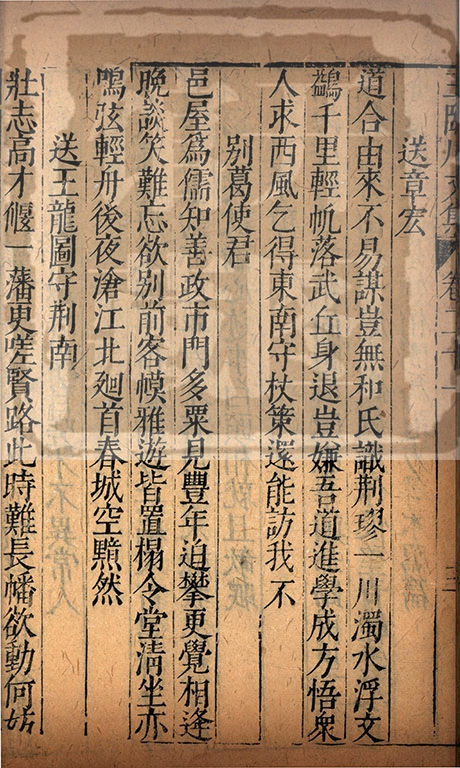 臨川文集 卷二十
送章宏
道合由來不易謀豈無和氏識荆璆一川濁水浮文
鷁千里輕帆落武丘身退豈嫌吾道進學成方悟衆
人求西風乞得東南守杖策還能訪我不
别葛使君
邑屋爲儒知善政市門多粟見豐年追攀更覺相逢
晚談笑難忘欲别前客幙雅遊皆置榻令堂清坐亦
鳴弦輕舟後夜滄江北廻首春城空黯然
送王龍圖守荆南
壯志高才偃一藩更嗟賢路此時難長幡欲動何妨